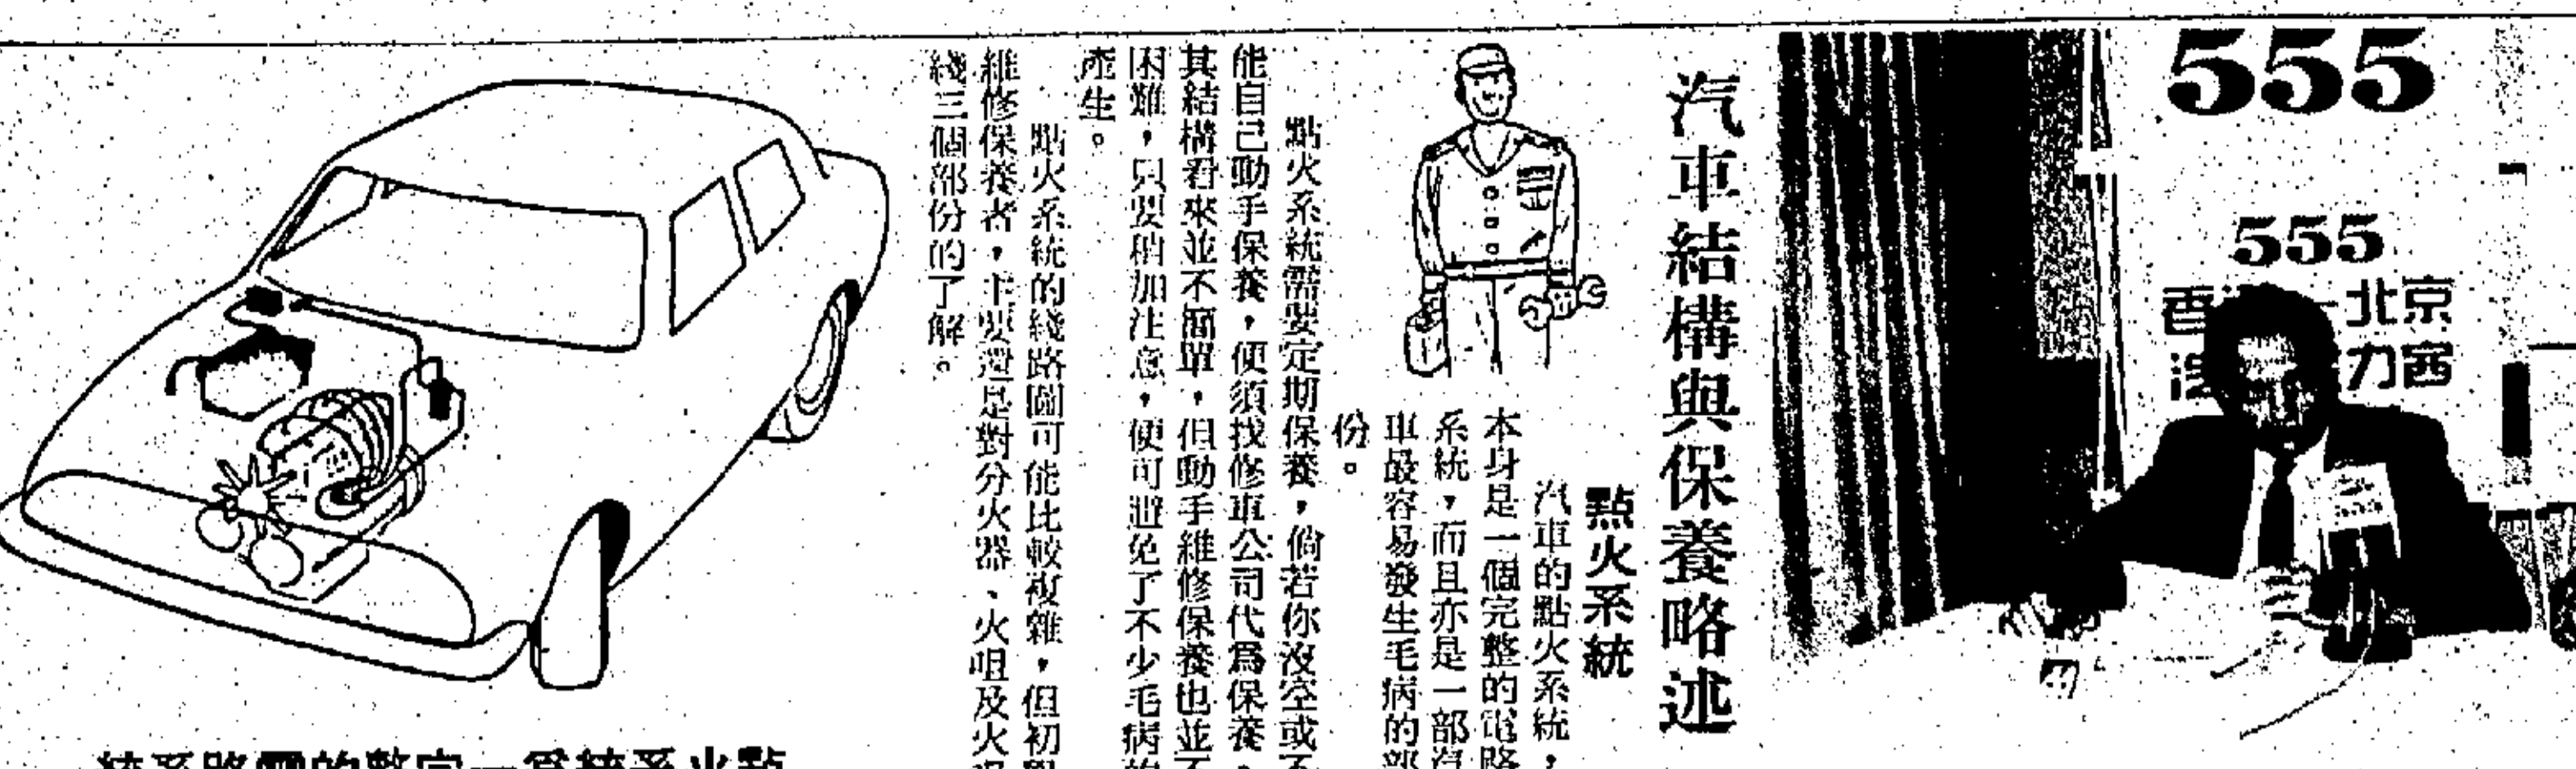 555
555
北京
力
汽車結構與保養略述
點火系統
汽車的點火系統，
本身是一個完整的電路
系統，而且亦是一部汽
車最容易發生毛病的部
份。
點火系統需要定期保養，倘若你沒空或不
能自己動手保養，便須找修車公司代爲保養，
其結構看來並不簡單，但動手維修保養也並不
困難，只要稍加注意，便可避免了不少毛病的
產生。
點火系統的綫路圖可能比較複雜，但初
維修保養者，主要還是對分火器、火咀及火
綫三個部份的了解。
統系路電的整完一爲統系火點